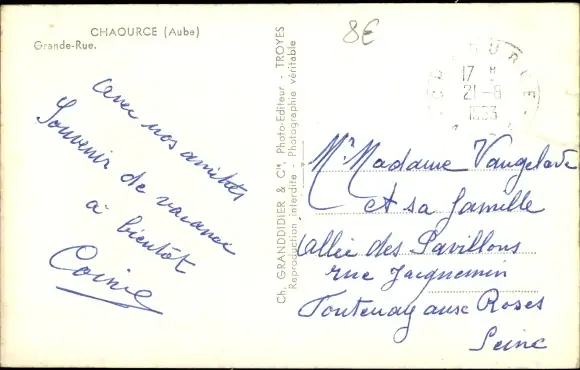 CHAOURCE (Aube)
Grande-Rue.
8€
avec nos amitiés
Souvenir de vacance
à bientôt
Ch. GRANDDIDIER & Cie Photo-Editeur - TROYES
Reproduction interdite - Photographie véritable
17 H
21-8
Mr Madame
et sa famille
allée des Pavillons
rue Jacquemin
Fontenay aux Roses
Seine